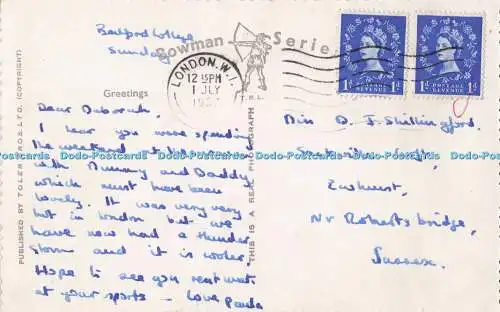 Bedford College
Sunday
Bowman Series
LONDON.W.1
12 15PM
1 JLY
1D POSTAGE REVENUE 1D
1D POSTAGE REVENUE 1D
Greetings
Dear Deborah,
I hear you were spending
the weekend at
with Mummy and Daddy
which must have been
lovely. It was very very
hot in London but we
have now had a thunder
storm and it is cooler.
Hope to see you next week
at your sports — Love Paula
Miss D. J. Shillingford,
Ewhurst,
Nr Robertsbridge,
Sussex.
PUBLISHED BY TOLER BROS. LTD. (COPYRIGHT)
THIS IS A REAL PHOTOGRAPH
Dodo-Postcards Dodo-Postcards Dodo-Postcards Dodo-Postcards Dodo-Postcards